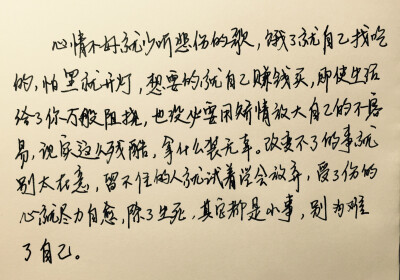 心情不好就少听悲伤的歌，饿了就自己找吃
的，怕黑就开灯，想要的就自己赚钱买，即使生活
给了你万般阻挠，也没必要用矫情放大自己的不容
易，现实这么残酷，拿什么装无辜。改变不了的事就
别太在意，留不住的人就试着学会放弃，受了伤的
心就尽力自愈，除了生死，其它都是小事，别为难
了自己。